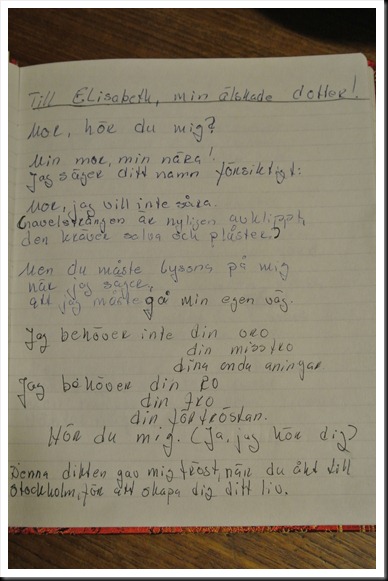 Till Elisabeth, min älskade dotter!
Mor, hör du mig?
Min mor, min nära!
Jag säger ditt namn försiktigt:
Mor, jag vill inte såra.
(navelsträngen är nyligen avklippt,
den kräver salva och plåster.)
Men du måste lyssna på mig
när jag säger,
att jag måste gå min egen väg.
Jag behöver inte din oro
din misstro
dina onda aningar.
Jag behöver din ro
din tro
din förtröstan.
Hör du mig. (Ja, jag hör dig)
Denna dikten gav mig tröst, när du åkt till
Stockholm, för att skapa dig ditt liv.